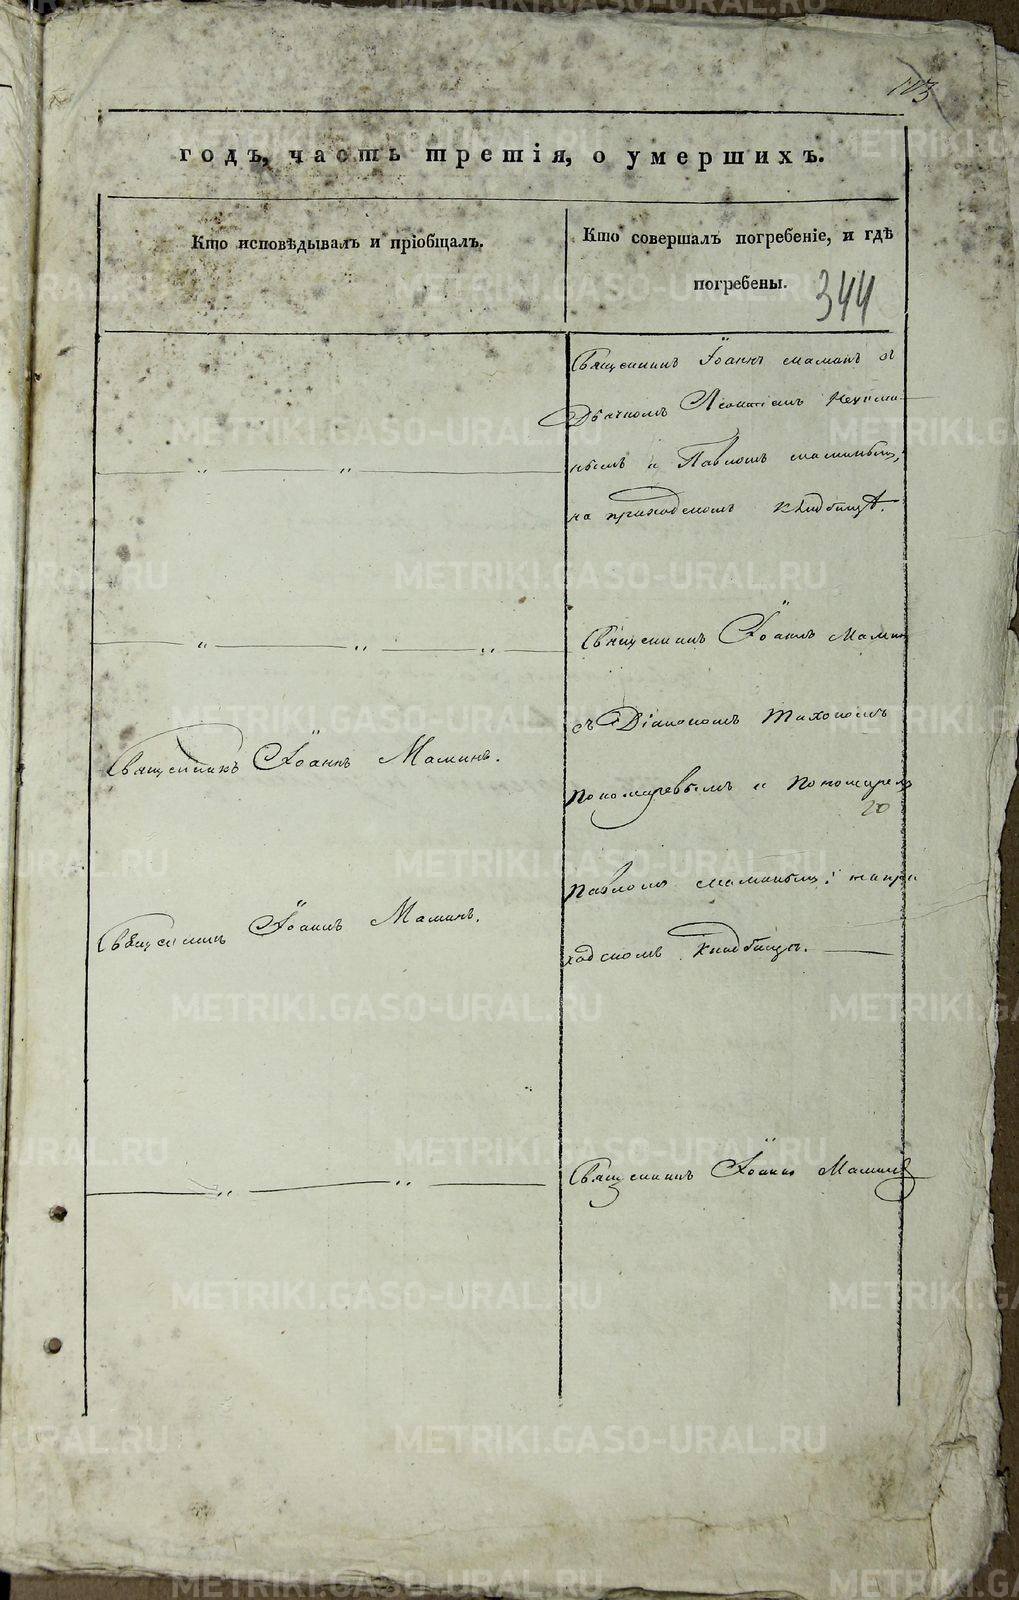 113
годъ, часть третія, о умершихъ.
Кто исповѣдывалъ и пріобщалъ.
Кто совершалъ погребеніе, и гдѣ
погребены.
344
Священникъ Іоаннъ Маминъ съ
Дьячкомъ Леонтіемъ
и Павломъ Маминымъ,
на приходскомъ кладбищѣ.
Священникъ Іоаннъ Маминъ
съ Діакономъ Тихономъ
Пономаревымъ и Пономаремъ
20
Павломъ Маминымъ; на при
ходскомъ кладбищѣ.
Священникъ Іоаннъ Маминъ.
Священникъ Іоаннъ Маминъ.
Священникъ Іоаннъ Маминъ
METRIKI.GASO-URAL.RU